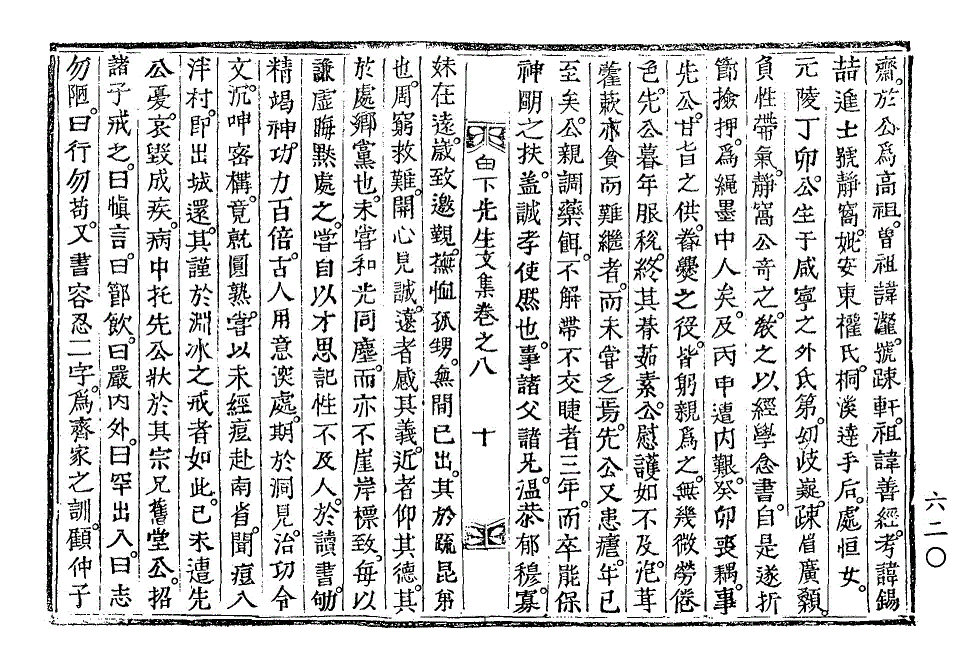 齋。於公爲高祖。曾祖諱瀣。號踈軒。祖諱善經。考諱錫
喆。進士號靜窩。妣安東權氏。桐溪達手后。處恒女。
元陵丁卯。公生于咸寧之外氏第。幼岐嶷。踈眉廣顙。
負性帶氣。靜窩公奇之。敎之以經學念書。自是遂折
節撿押。爲繩墨中人矣。及丙申遭内艱。癸卯喪耦。事
先公。甘旨之供。眷爨之役。皆躬親爲之。無幾微勞倦
色。先公暮年服稅。終其朞茹素。公慰護如不及。芚茸
藿蔌。亦貧而難繼者。而未嘗乏焉。先公又患瘧。年已
至矣。公親調藥餌。不解帶不交睫者三年。而卒能保
神明之扶。盖誠孝使然也。事諸父諸兄。溫恭郁穆。寡
白下先生文集卷之八　十
妹在遠。歲致邀覲。撫恤孤甥。無間已出。其於踈昆弟
也。周窮救難。開心見誠。遠者感其義。近者仰其德。其
於處鄕黨也。未嘗和光同塵。而亦不崖岸標致。每以
謙虛晦黙處之。嘗自以才思記性不及人。於讀書。劬
精竭神。功力百倍。古人用意深處。期於洞見。治功令
文。沉呻窖構。竟就圓熟。嘗以未經痘赴南省。聞痘入
泮村。卽出城還。其謹於淵冰之戒者如此。己未遭先
公憂。哀毁成疾。病中托先公狀於其宗兄舊堂公。招
諸子戒之。曰愼言。曰節飮。曰嚴内外。曰罕出入。曰志
勿陋。曰行勿苟。又書容忍二字。爲齊家之訓。顧仲子
六二〇